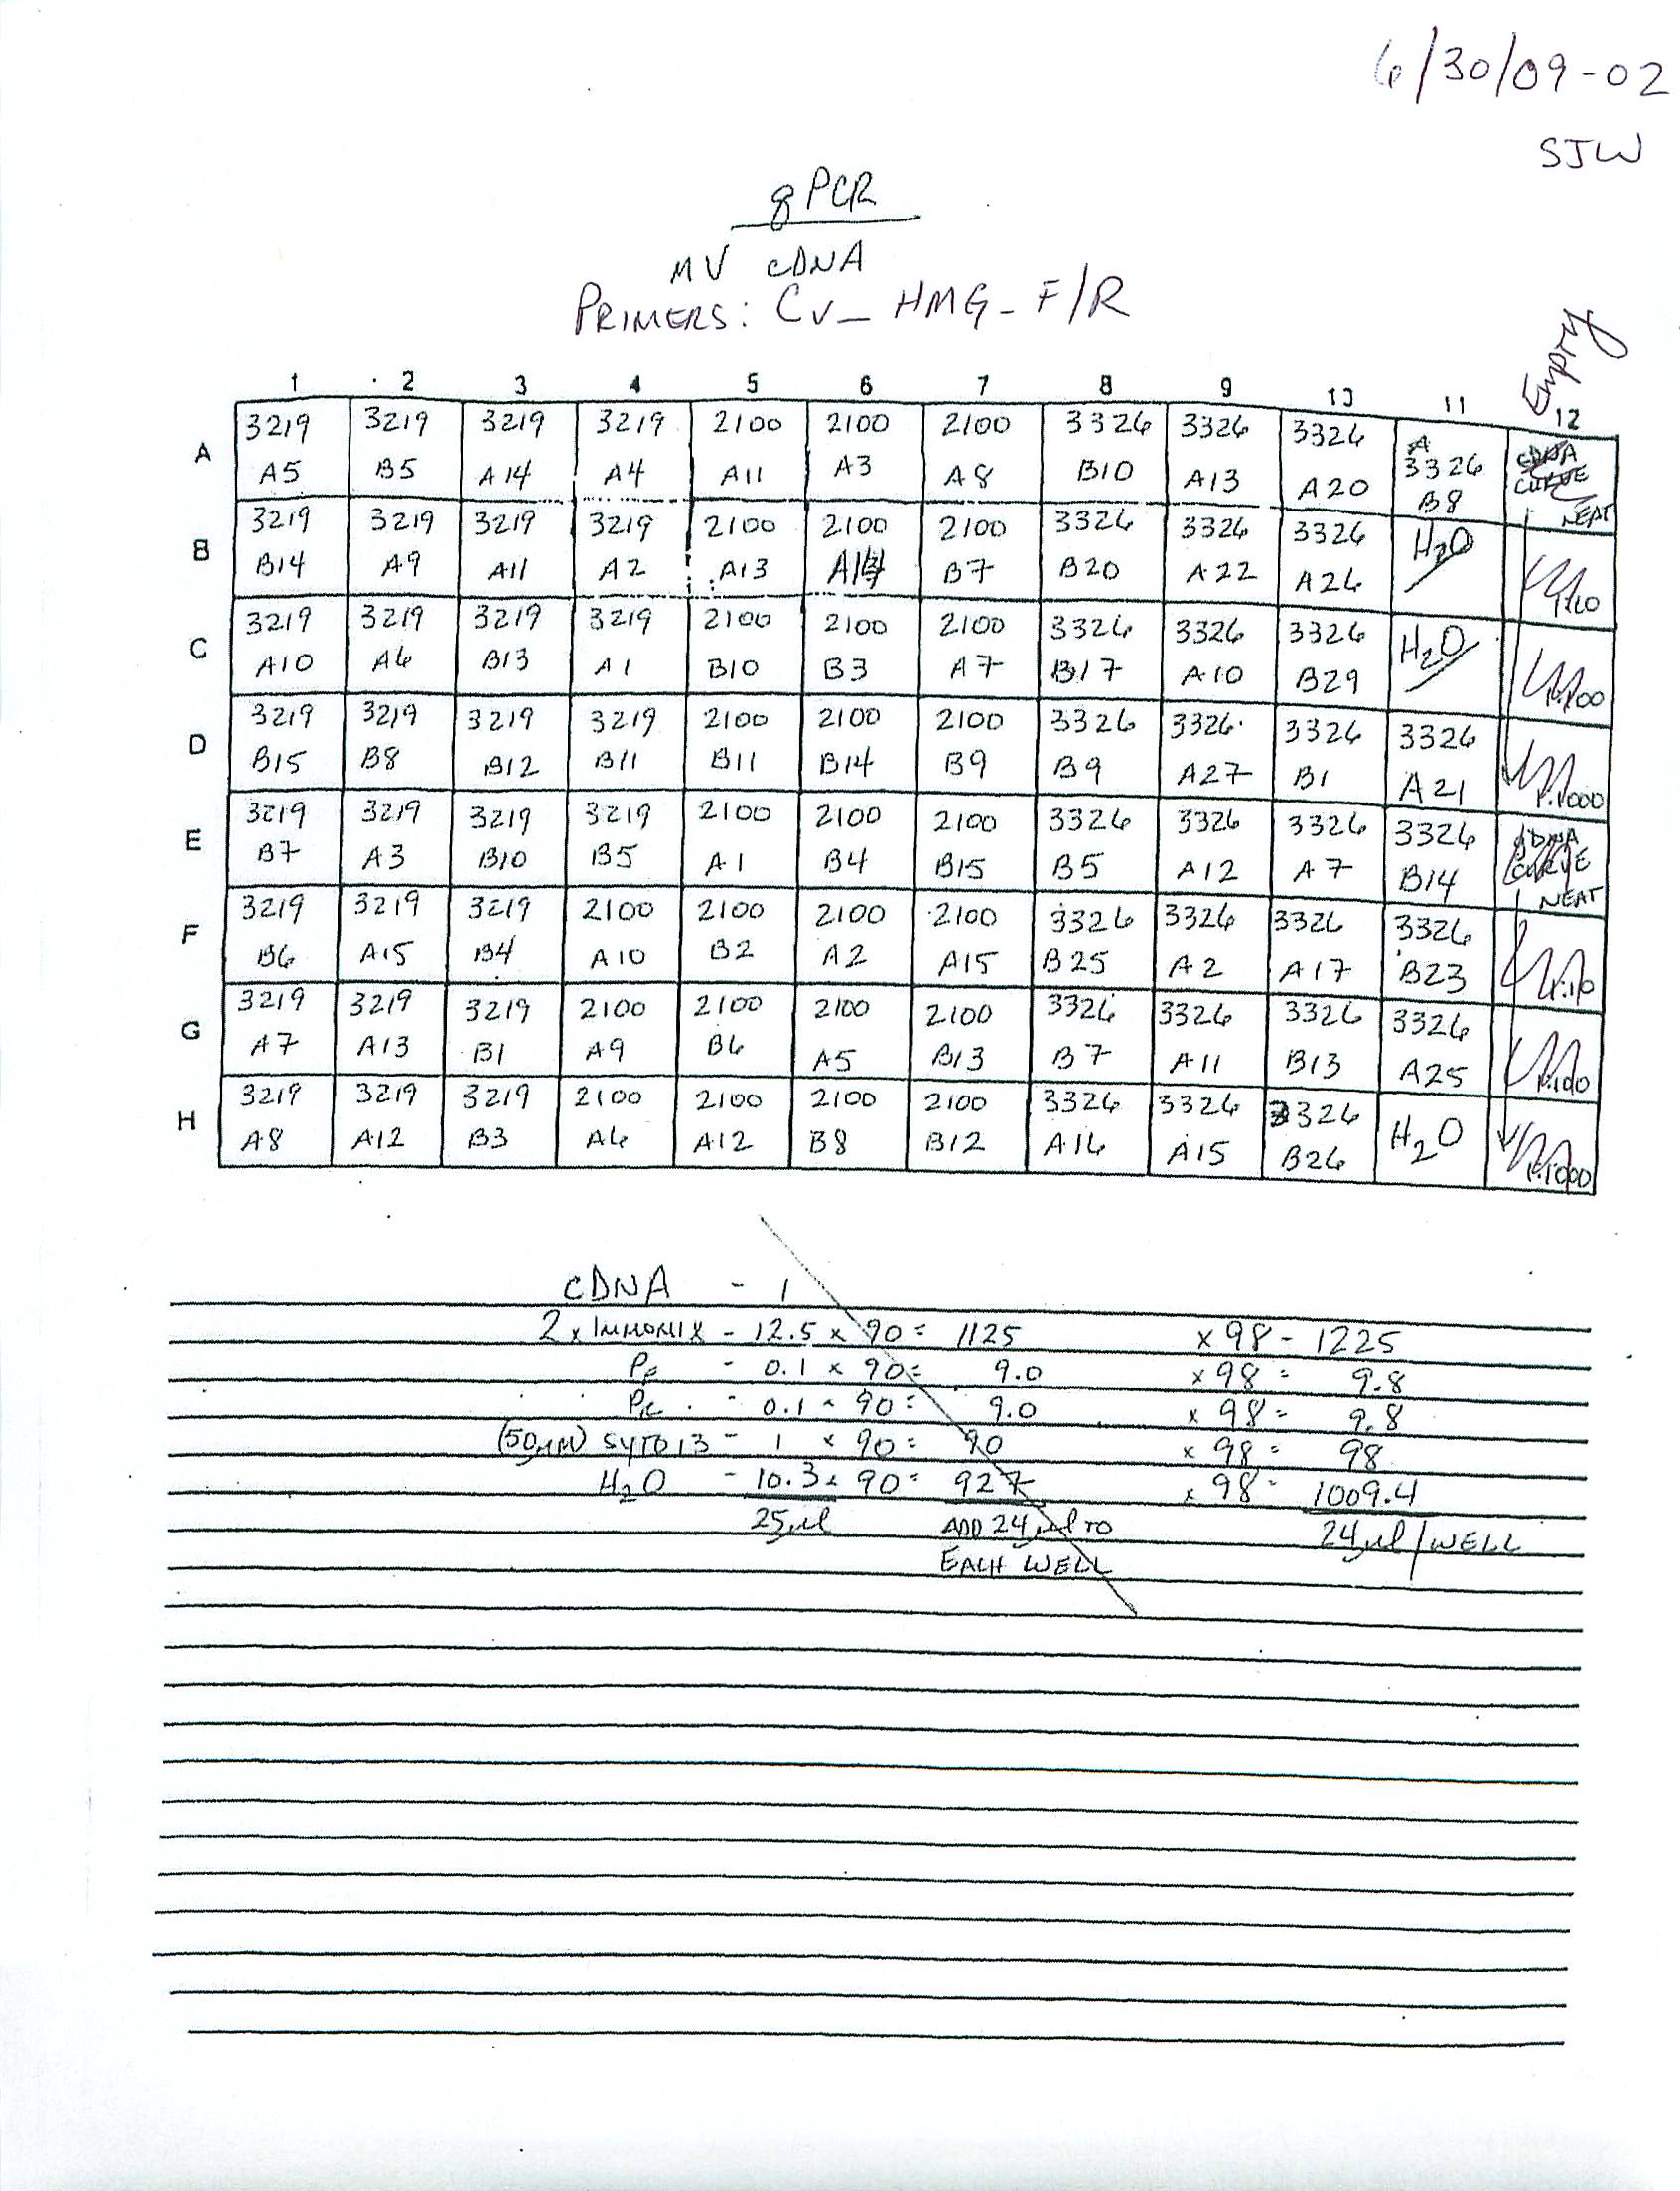 6/30/09-02
SJW
qPCR
MV cDNA
PRIMERS: Cv_HMG_F/R
Empty
1 2 3 4 5 6 7 8 9 10 11 12
A 3219 3219 3219 3219 2100 2100 2100 3326 3326 3326 3326 cDNA CURVE
A5 B5 A14 A4 A11 A3 A8 B10 A13 A20 B8 NEAT
B 3219 3219 3219 3219 2100 2100 2100 3326 3326 3326 H2O
B14 A9 A11 A2 A13 B7 B20 A22 A26 1:10
C 3219 3219 3219 3219 2100 2100 2100 3326 3326 3326 H2O
A10 A6 B13 A1 B10 B3 A7 B17 A10 B29 1:100
D 3219 3219 3219 3219 2100 2100 2100 3326 3326 3326 3326
B15 B8 B12 B11 B11 B14 B9 B9 A27 B1 A21 1:1000
E 3219 3219 3219 3219 2100 2100 2100 3326 3326 3326 3326 gDNA CURVE
B7 A3 B10 B5 A1 B4 B15 B5 A12 A7 B14 NEAT
F 3219 3219 3219 2100 2100 2100 2100 3326 3326 3326 3326
B6 A15 B4 A10 B2 A2 A15 B25 A2 A17 B23 1:10
G 3219 3219 3219 2100 2100 2100 2100 3326 3326 3326 3326
A7 A13 B1 A9 B6 A5 B13 B7 A11 B13 A25 1:100
H 3219 3219 3219 2100 2100 2100 2100 3326 3326 3326 H2O
A8 A12 B3 A6 A12 B8 B12 A16 A15 B26 1:1000
cDNA - 1
2x IMMOMIX - 12.5 x 90 = 1125 x 98 - 1225
PF - 0.1 x 90 = 9.0 x 98 = 9.8
PR - 0.1 x 90 = 9.0 x 98 = 9.8
(50µM) SYTO13 - 1 x 90 = 90 x 98 = 98
H2O - 10.3 x 90 = 927 x 98 = 1009.4
25µl ADD 24µl TO 24µl/WELL
EACH WELL